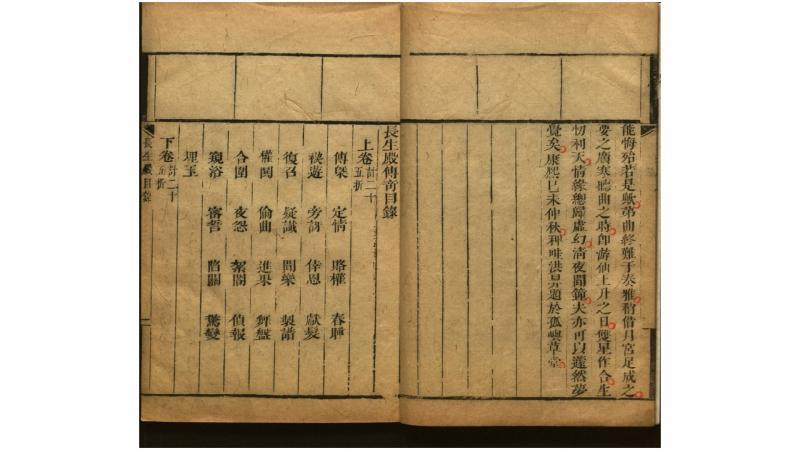 能悔殆若是歟第曲終難于奏雅稍借月宮足成之
要之廣寒聽曲之時即游仙上升之日雙星作合生
忉利天情緣總歸虛幻清夜聞鐘夫亦可以蘧然夢
覺矣康熙己未仲秋稗畦洪昇題於孤嶼草堂
長生殿傳奇目錄
上卷 計二十五折
傳槩 定情 賄權 春睡
禊遊 旁訝 倖恩 獻髮
復召 疑讖 聞樂 製譜
權鬨 偷曲 進果 舞盤
合圍 夜怨 絮閣 偵報
窺浴 密誓 陷關 驚變
埋玉
下卷 計二十五折
長生殿目錄 一